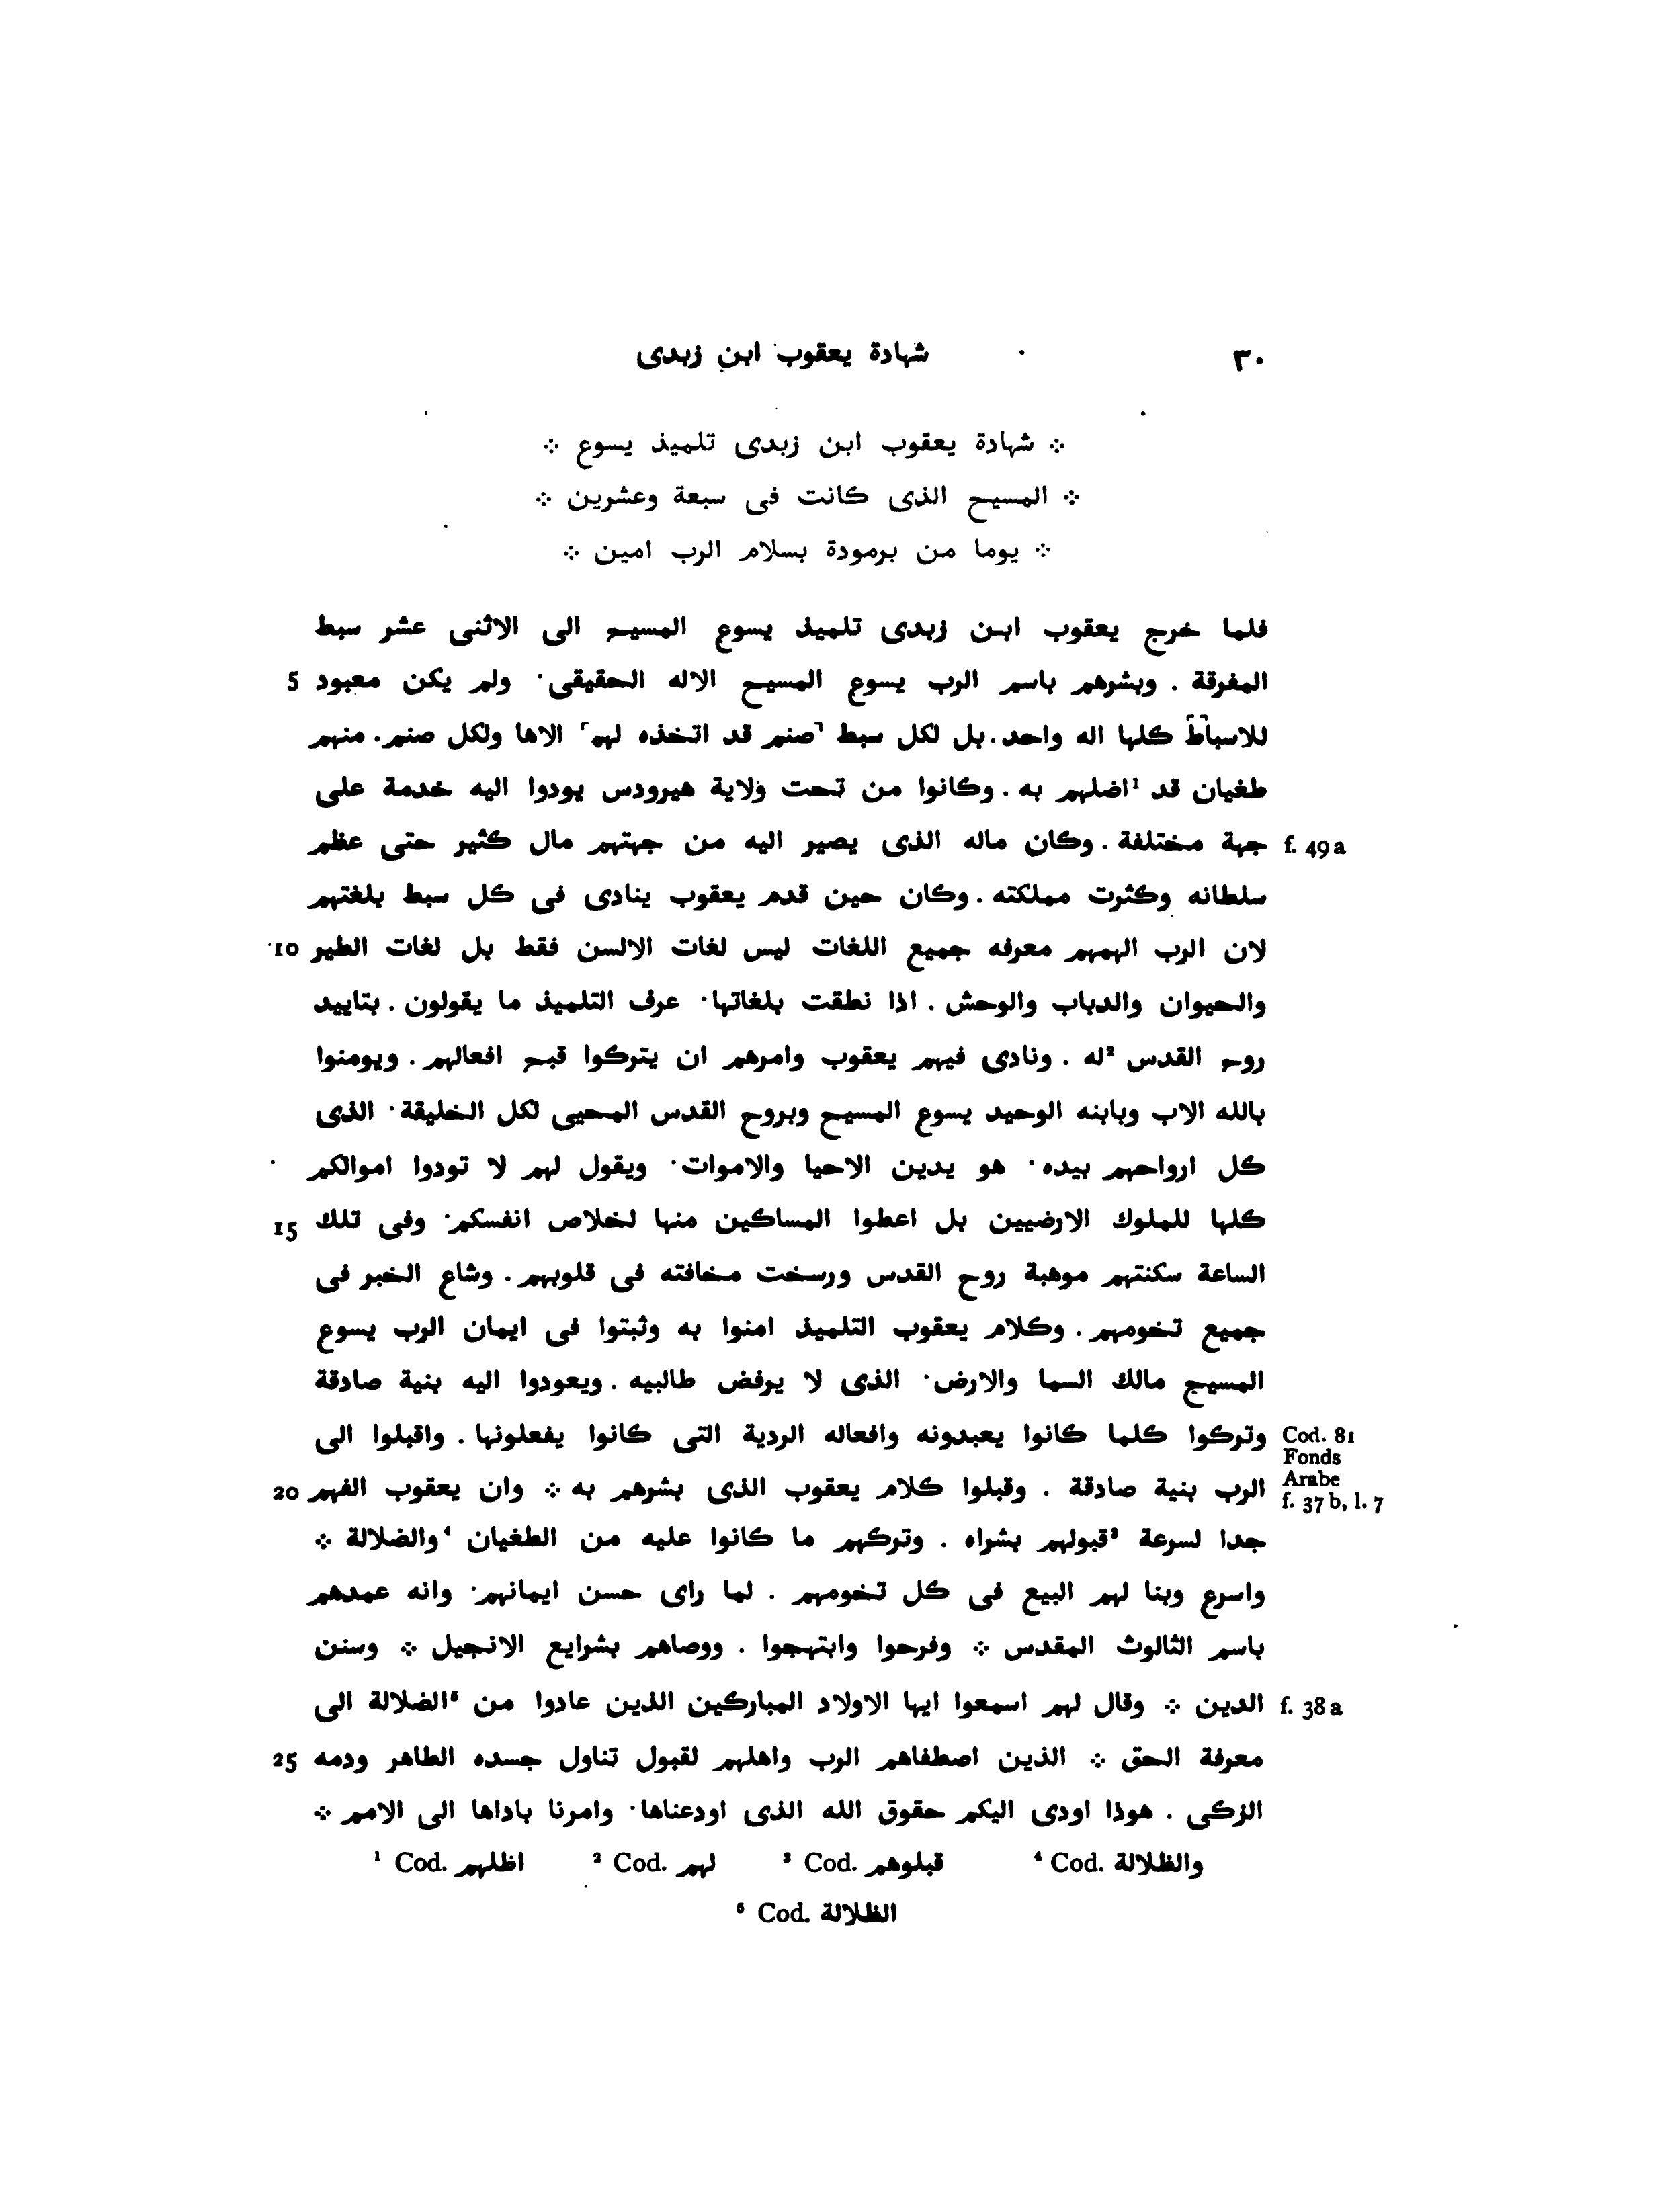 ٣٠ شهادة يعقوب ابن زبدى
⁘ شهادة يعقوب ابن زبدى تلميذ يسوع ⁘
⁘ المسيح الذى كانت فى سبعة وعشرين ⁘
⁘ يوما من برمودة بسلام الرب امين ⁘
فلما خرج يعقوب ابن زبدى تلميذ يسوع المسيح الى الاثنى عشر سبط
المفرقة . وبشرهم باسم الرب يسوع المسيح الاله الحقيقى · ولم يكن معبود 5
للاسباط كلها اله واحد . بل لكل سبط ⌜صنم قد اتخذه لهم⌝ الاها ولكل صنم . منهم
طغيان قد ¹اضلهم به . وكانوا من تحت ولاية هيرودس يودوا اليه خدمة على
f. 49 a جهة مختلفة . وكان ماله الذى يصير اليه من جهتهم مال كثير حتى عظم
سلطانه وكثرت مملكته . وكان حين قدم يعقوب ينادى فى كل سبط بلغتهم
لان الرب الهمهم معرفه جميع اللغات ليس لغات الالسن فقط بل لغات الطير 10
والحيوان والدباب والوحش . اذا نطقت بلغاتها · عرف التلميذ ما يقولون . بتاييد
روح القدس ²له . ونادى فيهم يعقوب وامرهم ان يتركوا قبح افعالهم . ويومنوا
بالله الاب وبابنه الوحيد يسوع المسيح وبروح القدس المحيى لكل الخليقة · الذى
كل ارواحهم بيده · هو يدين الاحيا والاموات · ويقول لهم لا تودوا اموالكم
كلها للملوك الارضيين بل اعطوا المساكين منها لخلاص انفسكم · وفى تلك 15
الساعة سكنتهم موهبة روح القدس ورسخت مخافته فى قلوبهم . وشاع الخبر فى
جميع تخومهم . وكلام يعقوب التلميذ امنوا به وثبتوا فى ايمان الرب يسوع
المسيح مالك السما والارض · الذى لا يرفض طالبيه . ويعودوا اليه بنية صادقة
Cod. 81 Fonds Arabe f. 37 b, l. 7 وتركوا كلما كانوا يعبدونه وافعاله الردية التى كانوا يفعلونها . واقبلوا الى
الرب بنية صادقة . وقبلوا كلام يعقوب الذى بشرهم به ⁘ وان يعقوب الفهم 20
جدا لسرعة ³قبولهم بشراه . وتركهم ما كانوا عليه من الطغيان ⁴والضلالة ⁘
واسرع وبنا لهم البيع فى كل تخومهم . لما راى حسن ايمانهم · وانه عمدهم
باسم الثالوث المقدس ⁘ وفرحوا وابتهجوا . ووصاهم بشرايع الانجيل ⁘ وسنن
f. 38 a الدين ⁘ وقال لهم اسمعوا ايها الاولاد المباركين الذين عادوا من ⁵الضلالة الى
معرفة الحق ⁘ الذين اصطفاهم الرب واهلهم لقبول تناول جسده الطاهر ودمه 25
الزكى . هوذا اودى اليكم حقوق الله الذى اودعناها · وامرنا باداها الى الامم ⁘
¹ Cod. اظلهم ² Cod. لهم ³ Cod. قبلوهم ⁴ Cod. والظلالة
⁵ Cod. الظلالة